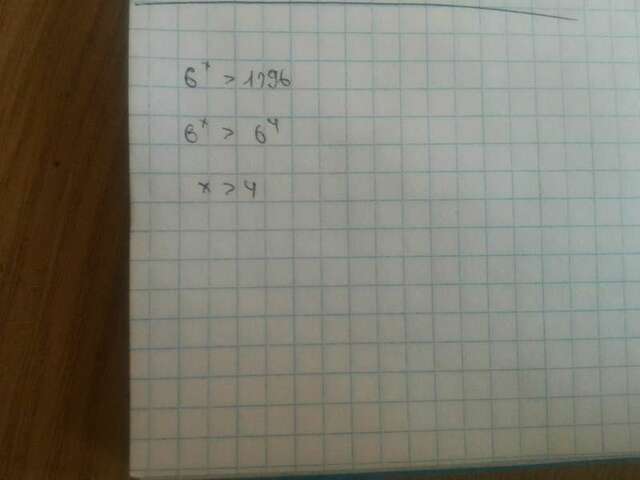 6^x > 1296
6^x > 6^4
x > 4